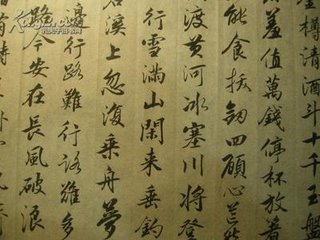 樽清酒斗十千玉盤
羞值萬錢停杯放著
能食拔劍四顧心茫
渡黃河冰塞川將登
行雪滿山閑来垂釣
溪上忽復乘舟夢
邊行路難行路難多
路今安在長風破浪